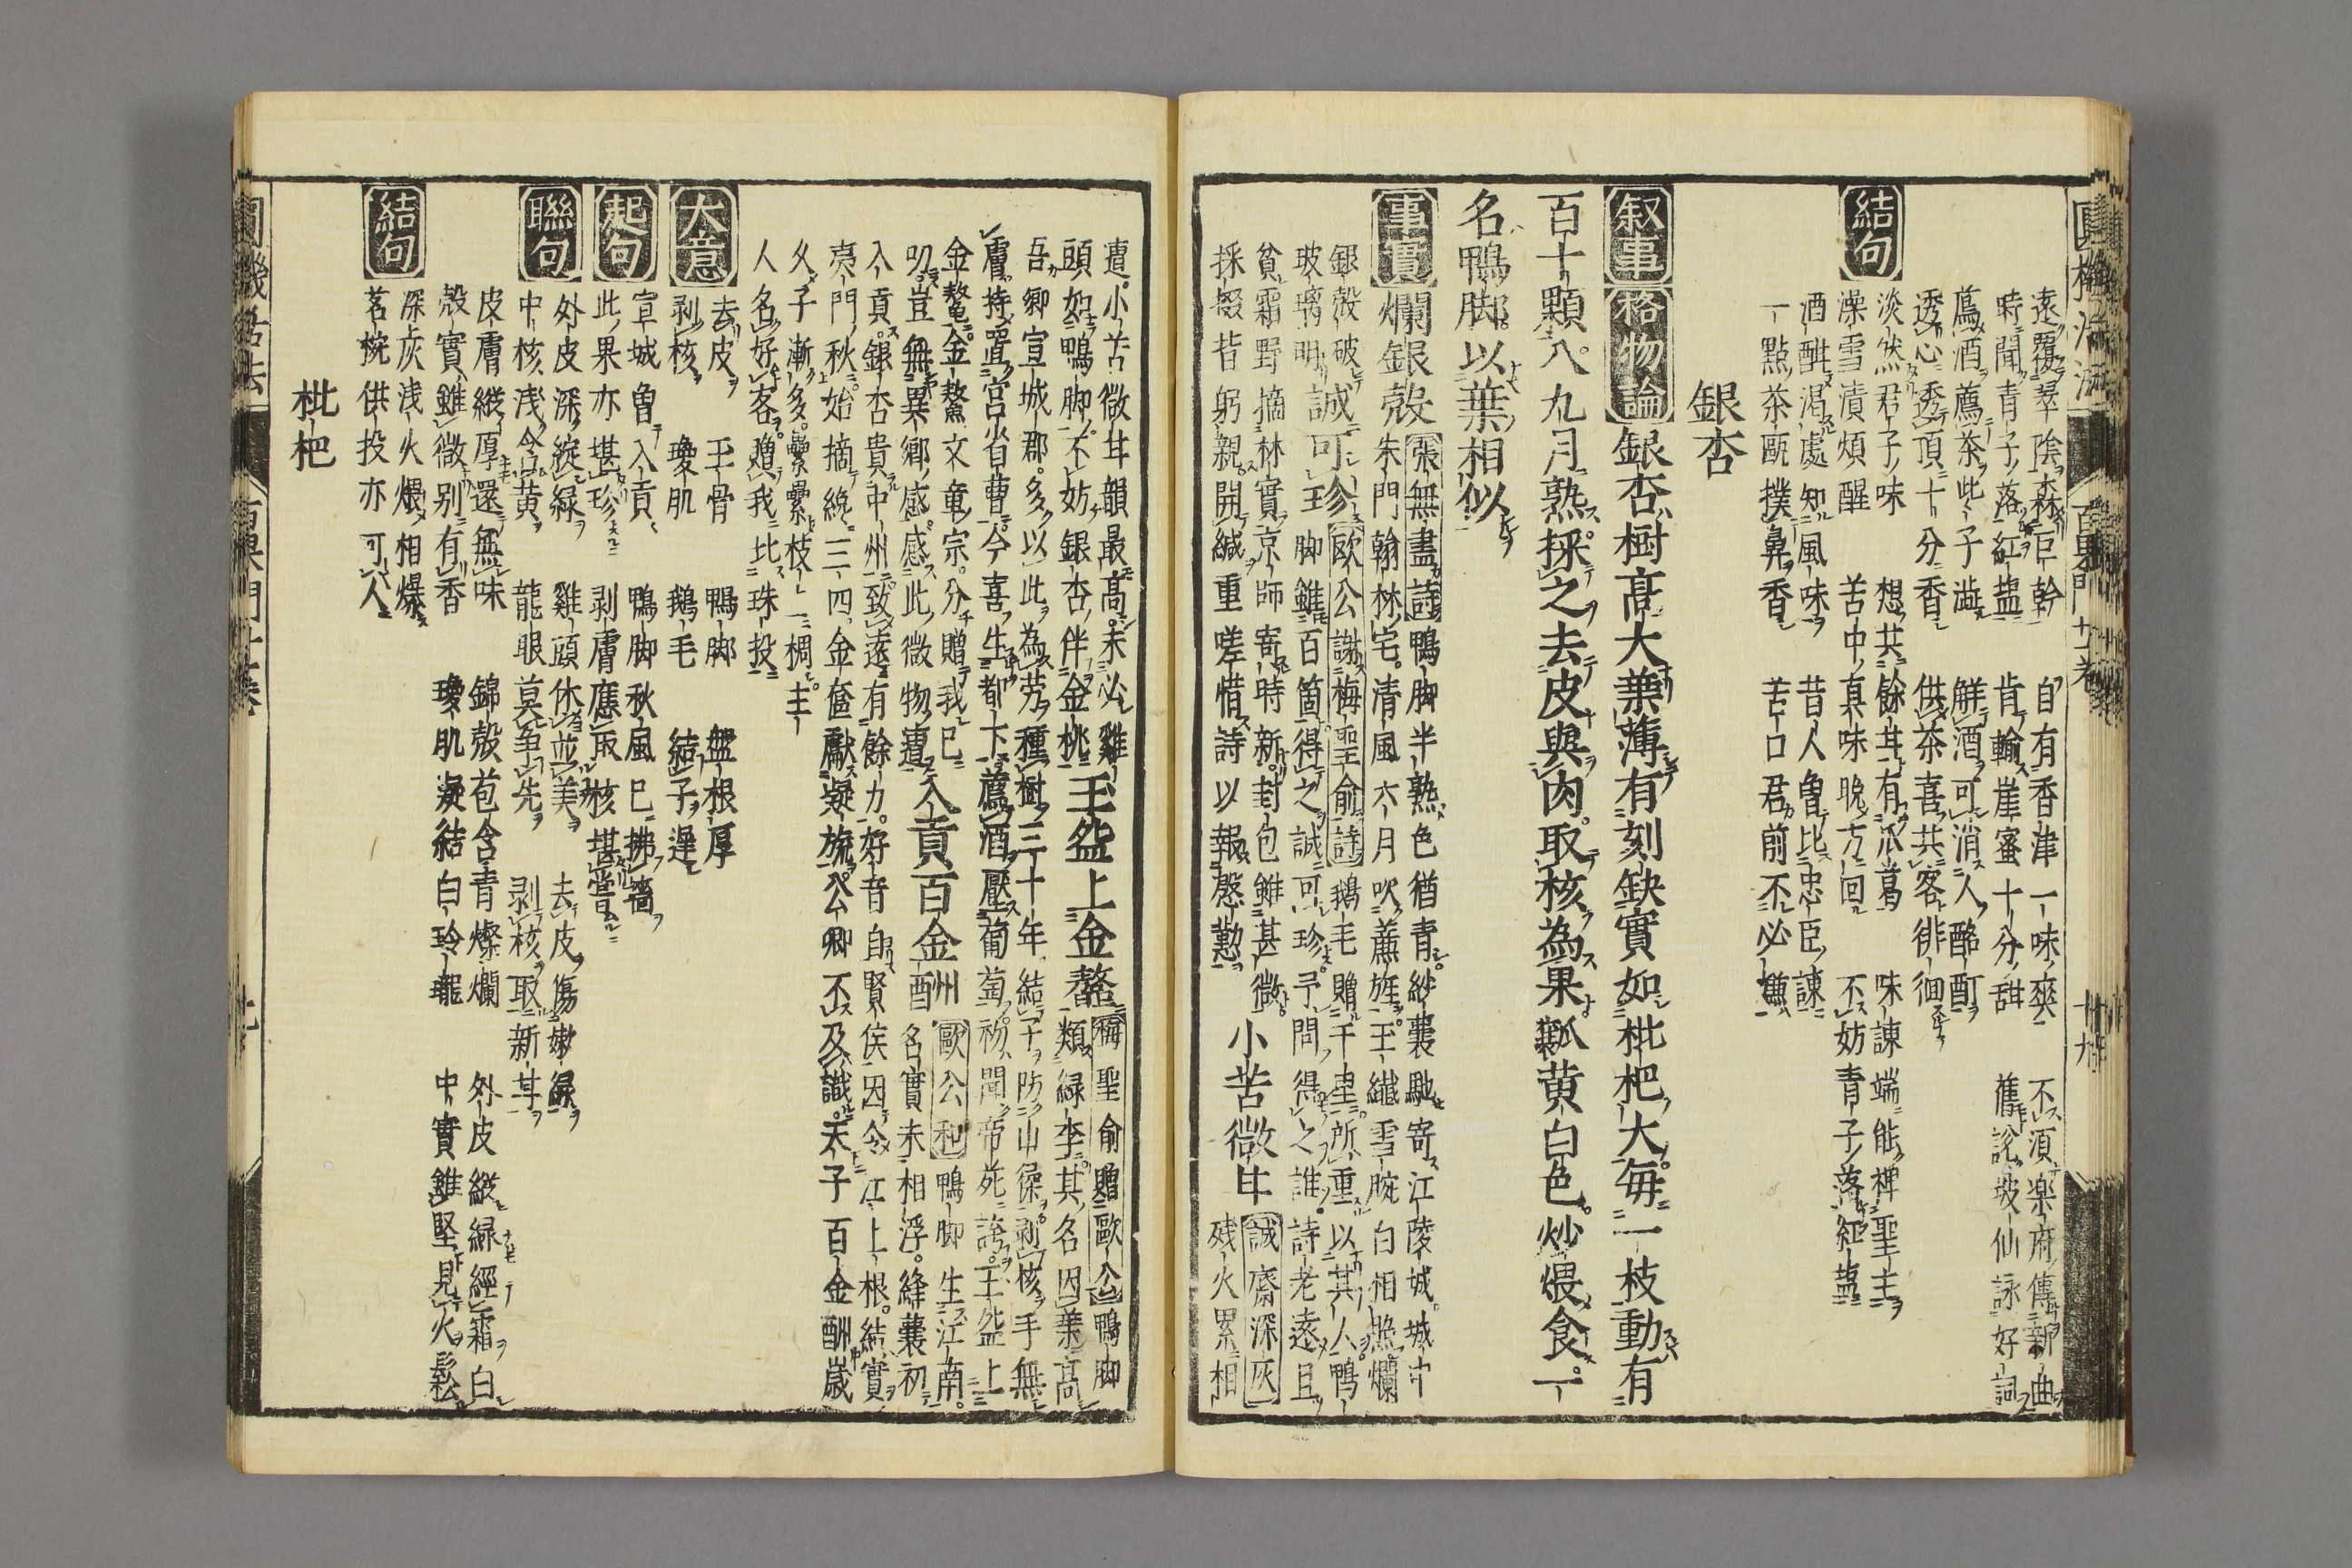 遠覆翠陰森巨幹 自有香津一味爽 不須楽府傳新曲
時聞青子落紅塩 肯輸崖蜜十分甜 舊説坡仙詠好詞
結句
薦酒薦茶此子澁 觧酒可消人酩酊
透心透頂十分香 供茶喜共客徘徊
淡然君子味 想共餘甘有瓜葛 味諫端能裨聖主
澡雪漬煩醒 苦中真味晩方回 不妨青子落紅塩
酒酣渇處知風味 昔人曽比忠臣諫
一點茶甌撲鼻香 苦口君前不必嫌
銀杏
叙事 格物論 銀杏樹髙大葉薄有刻缺實如枇杷大毎一枝動有
百十顆八九月熟採之去皮與肉取核為果瓤黄白色炒煨食一
名鴨脚以葉相似
事實 爛銀殻 張無盡詩 鴨脚半熟色猶青紗嚢馳寄江陵城城中
朱門翰林宅清風六月吹薦旌玉纎雪腕白相照爛
銀殻破誠可珍 歐公謝梅聖俞詩 鵝毛贈千里所重以其人鴨
脚雖百箇得之誠可珍予問得之誰詩老遠且
玻璃明玉
貧霜野摘林實京師寄時新封包雖甚微
採掇皆躬親開緘重嗟惜詩以報慇懃
小苦微甘 誠齋深灰
残火累相
遭小苦微甘韻最髙未必雞
頭如鴨脚不妨銀杏伴金桃
玉盌上金鼇 梅聖俞贈歐公 鴨脚
類緑李其名因葉髙
吾郷宣城郡多以此為労種樹三十年結子防山猱剥核手無
膚持置宮省曹今喜生都下薦酒壓葡萄初聞帝苑誇玉盌上
金鼇金鼇文章宗分贈我已
叨豈無異郷感感此微物遭
入貢百金州 歐公和 鴨脚生江南
名實未相浮絳嚢初
入貢銀杏貴中州致遠有餘力好音自賢侯因令江上根結實
夷門秋始摘纔三四金奩獻凝旒公卿不及識天子百金酬歳
久子漸多纍纍枝一稠主
人名好客贈我比珠投
大意 去皮 玉骨 鴨脚 盤根厚
剥核 瓊肌 鵝毛 結子遅
起句 宣城曽入貢 鴨脚秋風已拂檣
此果亦堪珍 剥膚應取核堪嘗
聯句 外皮深綻緑 雞頭休並美 去皮傷嫩緑
中核浅含黄 龍眼莫争先 剥核取新甘
皮膚縦厚還無味 錦殻苞含青燦爛 外皮縦緑經霜白
殻實雖微别有香 瓊肌凝結白玲瓏 中實雖堅見火鬆
結句 深灰浅火煨相爆
茗椀供投亦可人
枇杷